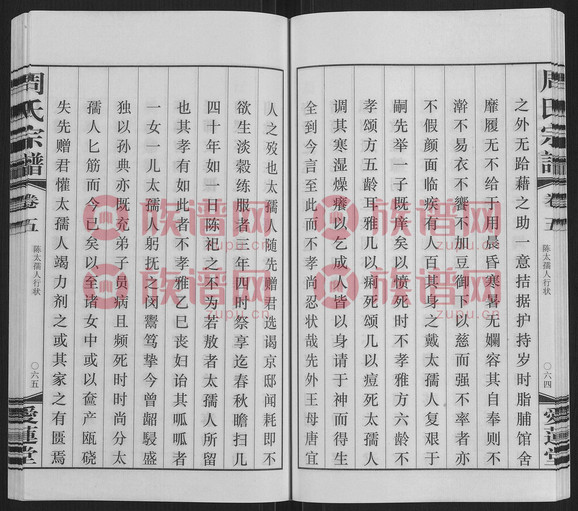 之外无跆藉之助一意拮据护持岁时脂脯馆舍
靡履无不给于用晨昏寒暑无孄容其自奉则不
澣不易衣不飨不加豆御下以慈而强不率者亦
不假颜面临疾有人百其身之戴太孺人复艰于
嗣先举一子既痒矣以愤死时不孝雅方六龄不
孝颂方五龄耳雅几以痢死颂几以痘死太孺人
调其寒湿燥飧以乞成人皆以身请于神而得生
全到今言至此而不孝尚忍状哉先外王母唐宜
周氏宗谱
卷五
陈太孺人行状
〇六四
爱莲堂
人之殁也太孺人随先赠君选谒京邸闻耗即不
欲生淡縠练服者三年四时祭享迄春秋瞻扫几
四十年如一日陈祀之不为若敖者太孺人所留
也其孝有如此者不孝雅之巳丧妇诒其呱呱者
一女一儿太孺人躬抚之闵鬻笃挚今曾龆髫盛
独以孙典亦既充弟子员病且频死时时尚分太
孺人匕筯而今已矣以至诸女中或以奁产瓯硗
失先赠君懽太孺人竭力剂之或其家之有匮焉
周氏宗谱
卷五
陈太孺人行状
〇六五
爱莲堂
族谱网
zupu.cn
族谱网
zupu.cn
族谱网
zupu.cn
族谱网
zupu.cn